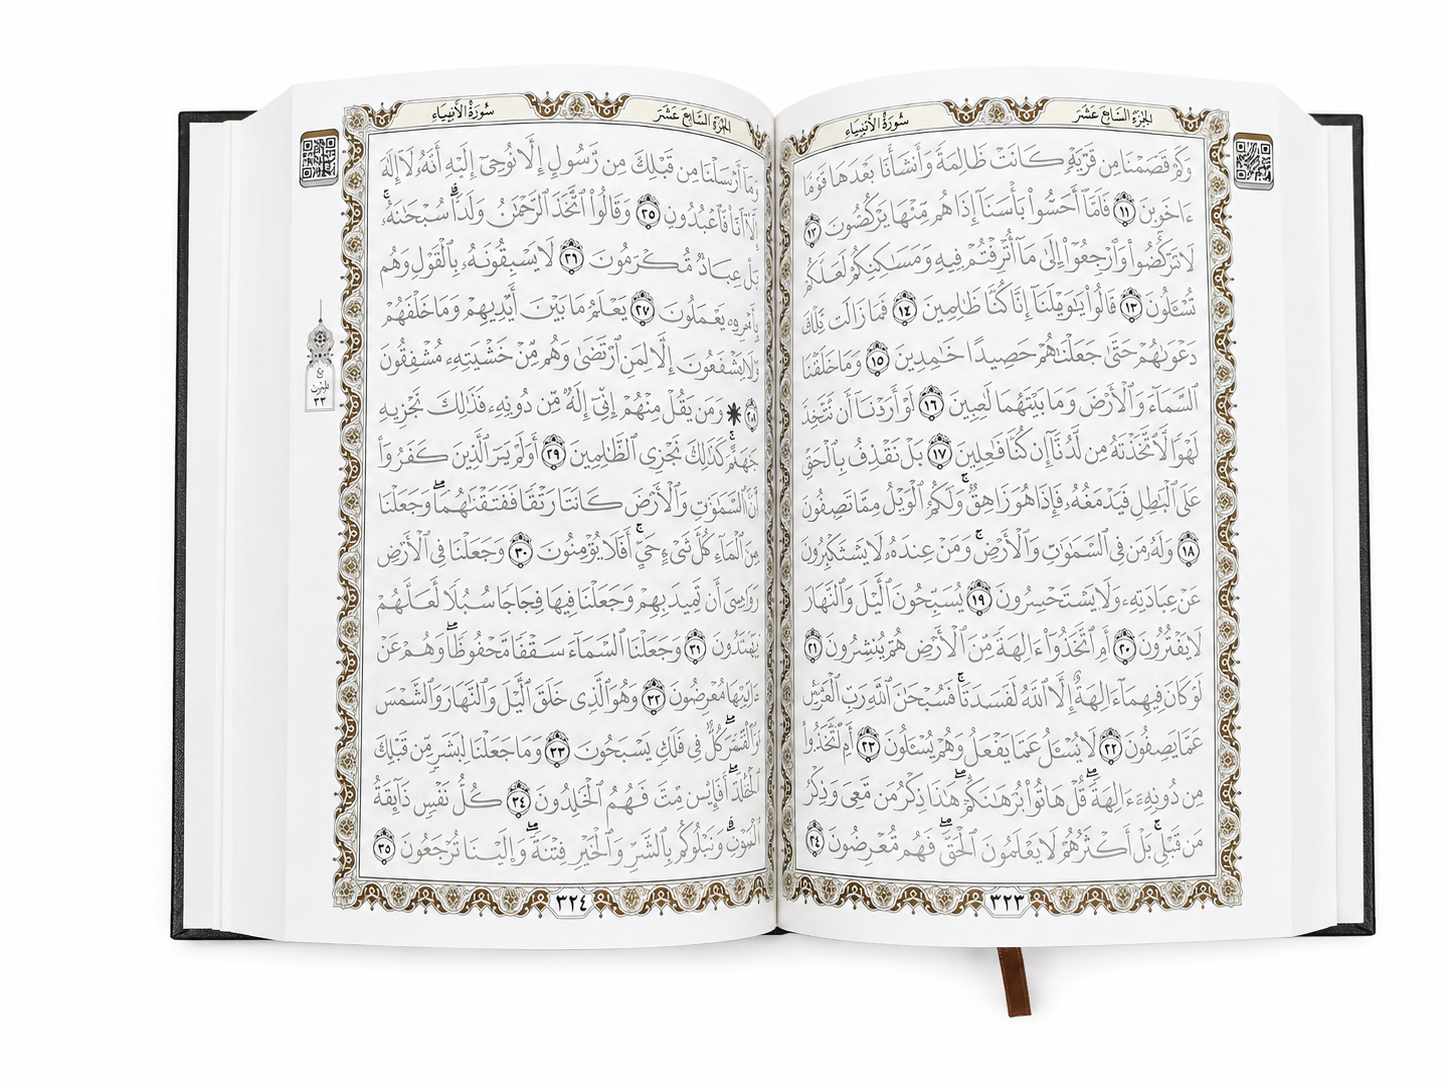 الجزء السابع عشر
سورة الأنبياء
وَكَمْ قَصَمْنَا مِن قَرْيَةٍ كَانَتْ ظَالِمَةً وَأَنشَأْنَا بَعْدَهَا قَوْمًا
ءَاخَرِينَ ١١ فَلَمَّآ أَحَسُّوا۟ بَأْسَنَآ إِذَا هُم مِّنْهَا يَرْكُضُونَ ١٢
لَا تَرْكُضُوا۟ وَٱرْجِعُوٓا۟ إِلَىٰ مَآ أُتْرِفْتُمْ فِيهِ وَمَسَٰكِنِكُمْ لَعَلَّكُمْ
تُسْـَٔلُونَ ١٣ قَالُوا۟ يَٰوَيْلَنَآ إِنَّا كُنَّا ظَٰلِمِينَ ١٤ فَمَا زَالَت تِّلْكَ
دَعْوَىٰهُمْ حَتَّىٰ جَعَلْنَٰهُمْ حَصِيدًا خَٰمِدِينَ ١٥ وَمَا خَلَقْنَا
ٱلسَّمَآءَ وَٱلْأَرْضَ وَمَا بَيْنَهُمَا لَٰعِبِينَ ١٦ لَوْ أَرَدْنَآ أَن نَّتَّخِذَ
لَهْوًا لَّٱتَّخَذْنَٰهُ مِن لَّدُنَّآ إِن كُنَّا فَٰعِلِينَ ١٧ بَلْ نَقْذِفُ بِٱلْحَقِّ
عَلَى ٱلْبَٰطِلِ فَيَدْمَغُهُۥ فَإِذَا هُوَ زَاهِقٌ ۚ وَلَكُمُ ٱلْوَيْلُ مِمَّا تَصِفُونَ
١٨ وَلَهُۥ مَن فِى ٱلسَّمَٰوَٰتِ وَٱلْأَرْضِ ۚ وَمَنْ عِندَهُۥ لَا يَسْتَكْبِرُونَ
عَنْ عِبَادَتِهِۦ وَلَا يَسْتَحْسِرُونَ ١٩ يُسَبِّحُونَ ٱلَّيْلَ وَٱلنَّهَارَ
لَا يَفْتُرُونَ ٢٠ أَمِ ٱتَّخَذُوٓا۟ ءَالِهَةً مِّنَ ٱلْأَرْضِ هُمْ يُنشِرُونَ ٢١
لَوْ كَانَ فِيهِمَآ ءَالِهَةٌ إِلَّا ٱللَّهُ لَفَسَدَتَا ۚ فَسُبْحَٰنَ ٱللَّهِ رَبِّ ٱلْعَرْشِ
عَمَّا يَصِفُونَ ٢٢ لَا يُسْـَٔلُ عَمَّا يَفْعَلُ وَهُمْ يُسْـَٔلُونَ ٢٣ أَمِ ٱتَّخَذُوا۟
مِن دُونِهِۦٓ ءَالِهَةً ۖ قُلْ هَاتُوا۟ بُرْهَٰنَكُمْ ۖ هَٰذَا ذِكْرُ مَن مَّعِىَ وَذِكْرُ
مَن قَبْلِى ۗ بَلْ أَكْثَرُهُمْ لَا يَعْلَمُونَ ٱلْحَقَّ ۖ فَهُم مُّعْرِضُونَ ٢٤
٣٢٣
الجزء السابع عشر
سورة الأنبياء
وَمَآ أَرْسَلْنَا مِن قَبْلِكَ مِن رَّسُولٍ إِلَّا نُوحِىٓ إِلَيْهِ أَنَّهُۥ لَآ إِلَٰهَ
إِلَّآ أَنَا۠ فَٱعْبُدُونِ ٢٥ وَقَالُوا۟ ٱتَّخَذَ ٱلرَّحْمَٰنُ وَلَدًا ۗ سُبْحَٰنَهُۥ ۚ
بَلْ عِبَادٌ مُّكْرَمُونَ ٢٦ لَا يَسْبِقُونَهُۥ بِٱلْقَوْلِ وَهُم
بِأَمْرِهِۦ يَعْمَلُونَ ٢٧ يَعْلَمُ مَا بَيْنَ أَيْدِيهِمْ وَمَا خَلْفَهُمْ
وَلَا يَشْفَعُونَ إِلَّا لِمَنِ ٱرْتَضَىٰ وَهُم مِّنْ خَشْيَتِهِۦ مُشْفِقُونَ
٢٨ ۞ وَمَن يَقُلْ مِنْهُمْ إِنِّىٓ إِلَٰهٌ مِّن دُونِهِۦ فَذَٰلِكَ نَجْزِيهِ
جَهَنَّمَ ۚ كَذَٰلِكَ نَجْزِى ٱلظَّٰلِمِينَ ٢٩ أَوَلَمْ يَرَ ٱلَّذِينَ كَفَرُوٓا۟
أَنَّ ٱلسَّمَٰوَٰتِ وَٱلْأَرْضَ كَانَتَا رَتْقًا فَفَتَقْنَٰهُمَا ۖ وَجَعَلْنَا
مِنَ ٱلْمَآءِ كُلَّ شَىْءٍ حَىٍّ ۖ أَفَلَا يُؤْمِنُونَ ٣٠ وَجَعَلْنَا فِى ٱلْأَرْضِ
رَوَٰسِىَ أَن تَمِيدَ بِهِمْ وَجَعَلْنَا فِيهَا فِجَاجًا سُبُلًا لَّعَلَّهُمْ
يَهْتَدُونَ ٣١ وَجَعَلْنَا ٱلسَّمَآءَ سَقْفًا مَّحْفُوظًا ۖ وَهُمْ عَنْ
ءَايَٰتِهَا مُعْرِضُونَ ٣٢ وَهُوَ ٱلَّذِى خَلَقَ ٱلَّيْلَ وَٱلنَّهَارَ وَٱلشَّمْسَ
وَٱلْقَمَرَ ۖ كُلٌّ فِى فَلَكٍ يَسْبَحُونَ ٣٣ وَمَا جَعَلْنَا لِبَشَرٍ مِّن قَبْلِكَ
ٱلْخُلْدَ ۖ أَفَإِي۟ن مِّتَّ فَهُمُ ٱلْخَٰلِدُونَ ٣٤ كُلُّ نَفْسٍ ذَآئِقَةُ
ٱلْمَوْتِ ۗ وَنَبْلُوكُم بِٱلشَّرِّ وَٱلْخَيْرِ فِتْنَةً ۖ وَإِلَيْنَا تُرْجَعُونَ ٣٥
٣٣
٣٢٤